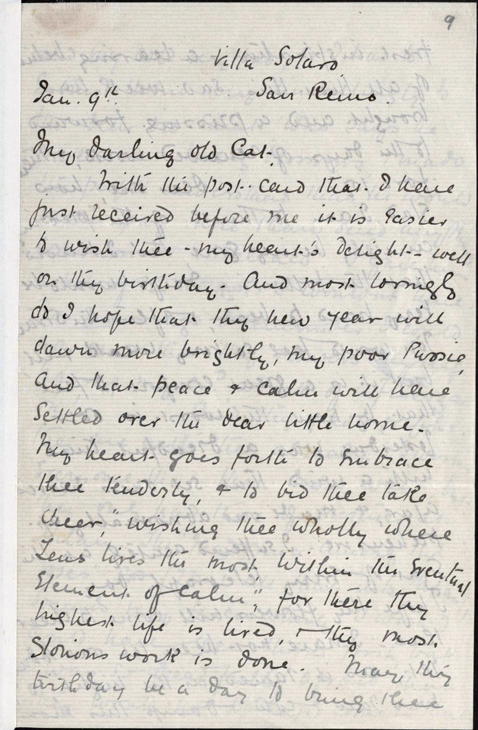 9
Villa Solaro
Jan. 9th San Remo.
My darling old Cat.
With the post-card that I have
just received before me it is easier
to wish thee - my heart's Delight - well
on thy birthday. And most lovingly
do I hope that thy new year will
dawn more brightly, my poor Pussie,
And that peace & calm will have
Settled over the dear little home.
My heart goes forth to Embrace
thee tenderly, & to bid thee take
cheer," wishing thee wholly where
Zeus lives the most, within the Eventual
Element of Calm", for there thy
highest life is lived, & thy most
Glorious work is done. May thy
birthday be a day to bring thee